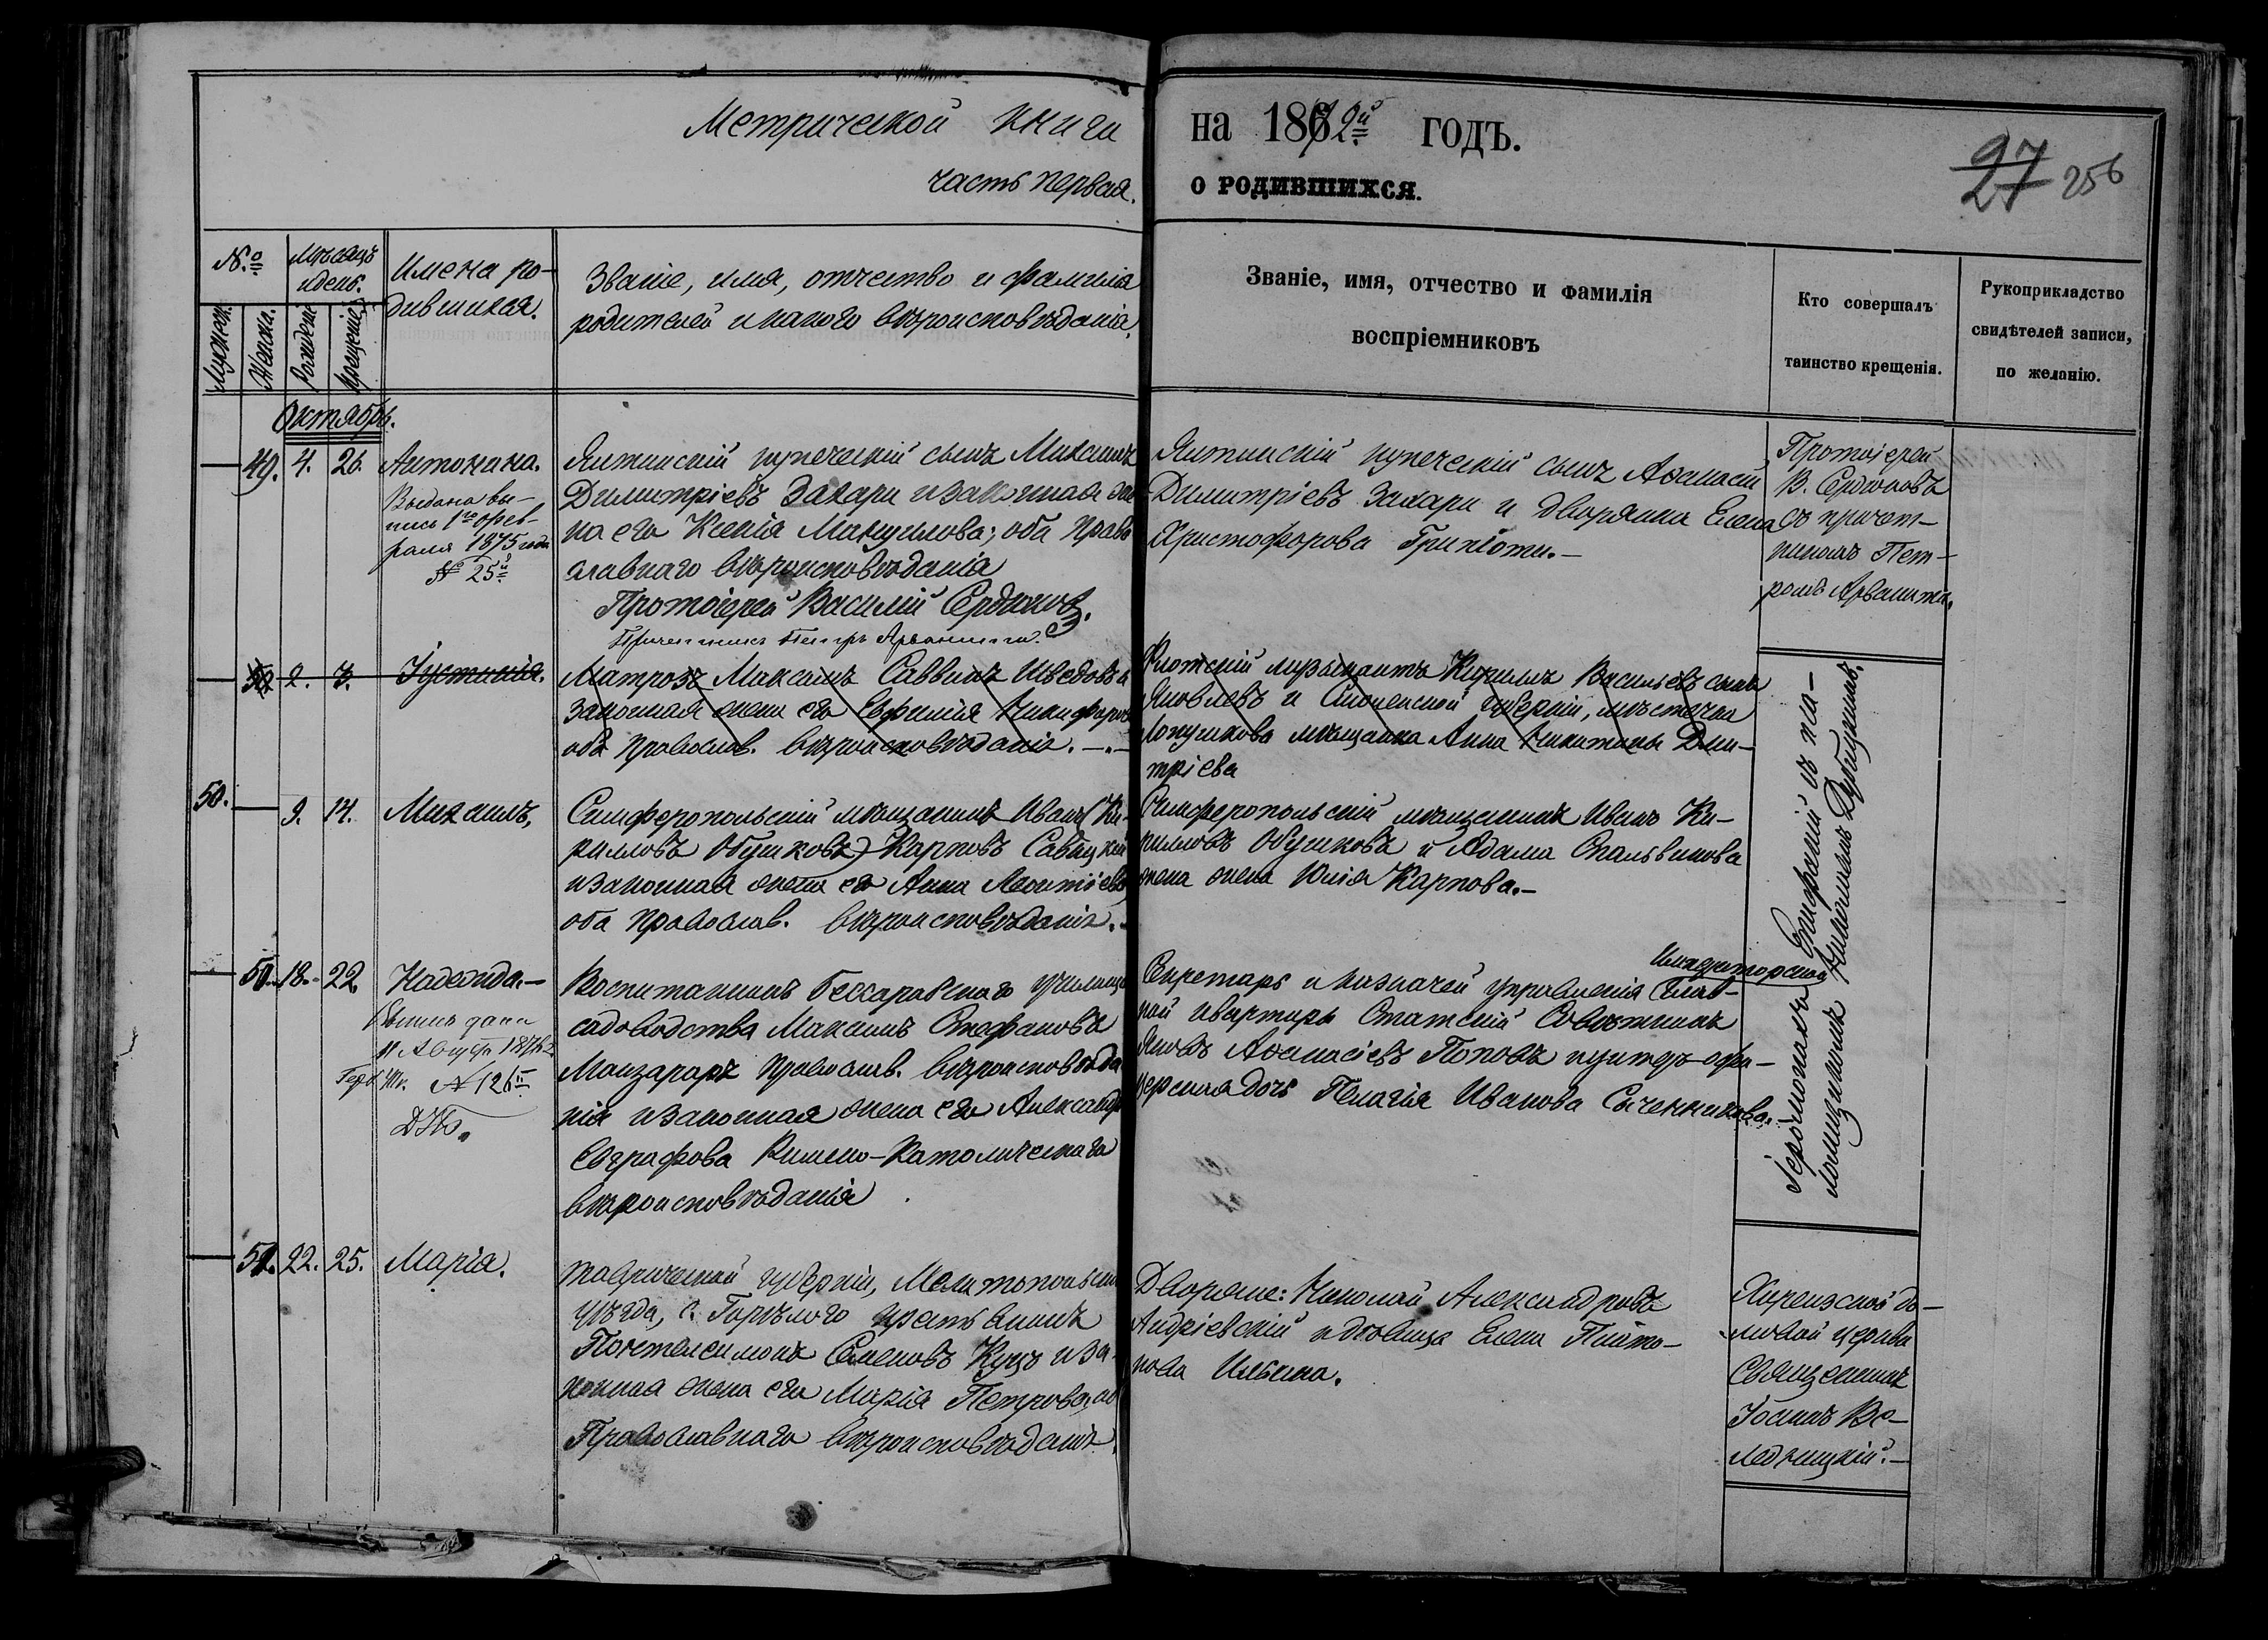 Метрической книги
часть первая.
на 1872й годъ.
о родившихся.
27 256
№о
Мѣсяцъ
и день.
Имена ро-
дившихся.
Званіе, имя, отчество и фамилія
родителей и какого вѣроисповѣданія.
Мужеск.
Женска.
Рожденія
Крещенія
Званіе, имя, отчество и фамилія
воспріемниковъ
Кто совершалъ
таинство крещенія.
Рукоприкладство
свидѣтелей записи,
по желанію.
Октябрь.
49. 4. 26. Антонина.
Выдана вы-
пись 1го фев-
раля 1875 года
№ 25й
Ялтинскій купеческій сынъ Максимъ
Димитріевъ Захари и законная же-
на его Ксенія Мануилова; оба право
славнаго вѣроисповѣданія
Протоіерей Василій Сердюковъ.
Причетникъ Петръ Арванити.
Ялтинскій купеческій сынъ Аѳанасій
Димитріевъ Захари и дворянка Елена
Христофорова Грипіоти.—
Протоіерей
В. Сердюковъ
съ причет-
никомъ Пет-
ромъ Арванити.
50 2. 7. Іустинія.
Матрозъ Максимъ Саввинъ Шведовъ и
законная жена его Евфимія Никифоров
оба православ. вѣроисповѣданія.—.—
Флотскій музыкантъ Кирилъ Васильевъ сынъ
Яковлевъ и Смоленской губерніи, мѣстечка
мѣщанка Анна Никитина Дми-
тріева
50. 9. 14. Михаилъ,
Симферопольскій мѣщанинъ Иванъ (Ки-
рилловъ Обушковъ) Карповъ Савицкій
и законная жена его Анна Леонтіева
оба православ. вѣроисповѣданія.—
Симферопольскій мѣщанинъ Иванъ Ки-
рилловъ Обушковъ и Адама
жена Юлія Карпова.—
51. 18. 22. Надежда.—
Выпись дана
11 Август 187
Герб. № 126й
Воспитанникъ Бессарабскаго училища
садоводства Максимъ Стефановъ
Манзараръ православ. вѣроисповѣда
нія и законная жена его Александр
Евграфова Римско-Католическаго
вѣроисповѣданія
Секретарь и казначей управленія Глав-
ной квартиры Статскій Совѣтникъ
Яковъ Аѳанасіевъ Поповъ и унтер-офи-
церская дочь Пелагія Иванова
Іеромонахъ Епифаній съ пса-
ломщикомъ Николаемъ
52. 22. 25. Марія.
Таврической губерніи, Мелитопольска
уѣзда, с. Горѣлого крестьянинъ
Пантелеимонъ Семеновъ Куцъ и за-
конная жена его Марія Петрова, об
Православнаго вѣроисповѣданія.
Дворяне: Николай Александровъ
Андріевскій и дѣвица Елена Плато-
нова Ильина.
до-
мовой церкви
Священникъ
Іоаннъ Ве-
ледницкій.—